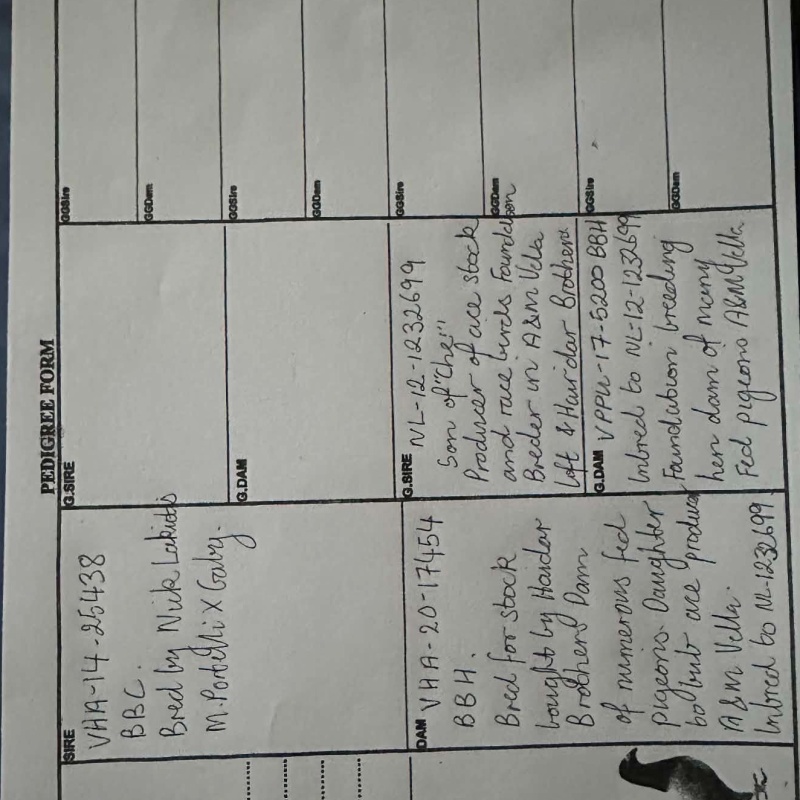 PEDIGREE FORM
SIRE
VHA-14-25438
BBC.
Bred by Nick Lakiotis
M. Portelli X Gaby.
DAM VHA-20-17454
BBH.
Bred for stock
bought by Haidar
Brothers Dam
of numerous fed
pigeons. Daughter
to but ace
A&M Vella.
Inbred to NL-1232699.
G.SIRE
G.DAM
G.SIRE NL-12-1232699
Son of "Che"
Producer of ace stock
and race birds Foundation
Breder in A&M Vella
Loft & Haidar Brothers
G.DAM VPPU-17-5200 BBH
Inbred to NL-12-1232699
Foundation breeding
hen dam of many
Fed pigeons A&M Vella
GGSire
GGDam
GGSire
GGDam
GGSire
GGDam
GGSire
GGDam